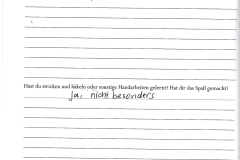 Hast du stricken und häkeln oder sonstige Handarbeiten gelernt? Hat dir das Spaß gemacht?
Ja, nicht besonders